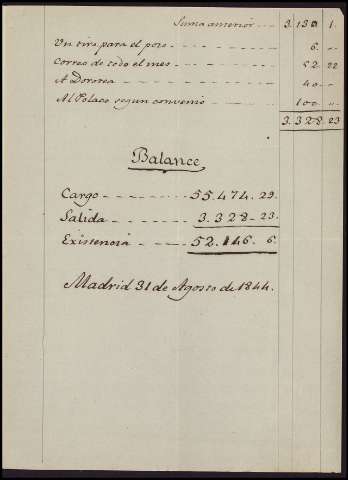 Suma anterior - - 3.130 1.
Un tiro para el pozo - - - - - - - - 6. "
Correo de todo el mes - - - - - - - 52. 22
A Dorotea - - - - - - - - - 40 "
Al Polaco segun convenio - - - - - 100 "
3.328. 23
Balance
Cargo - - - - - - - 55.474. 29.
Salida - - - - - - - 3.328. 23.
Existencia - - - - - 52.146. 6.
Madrid 31 de Agosto de 1844.